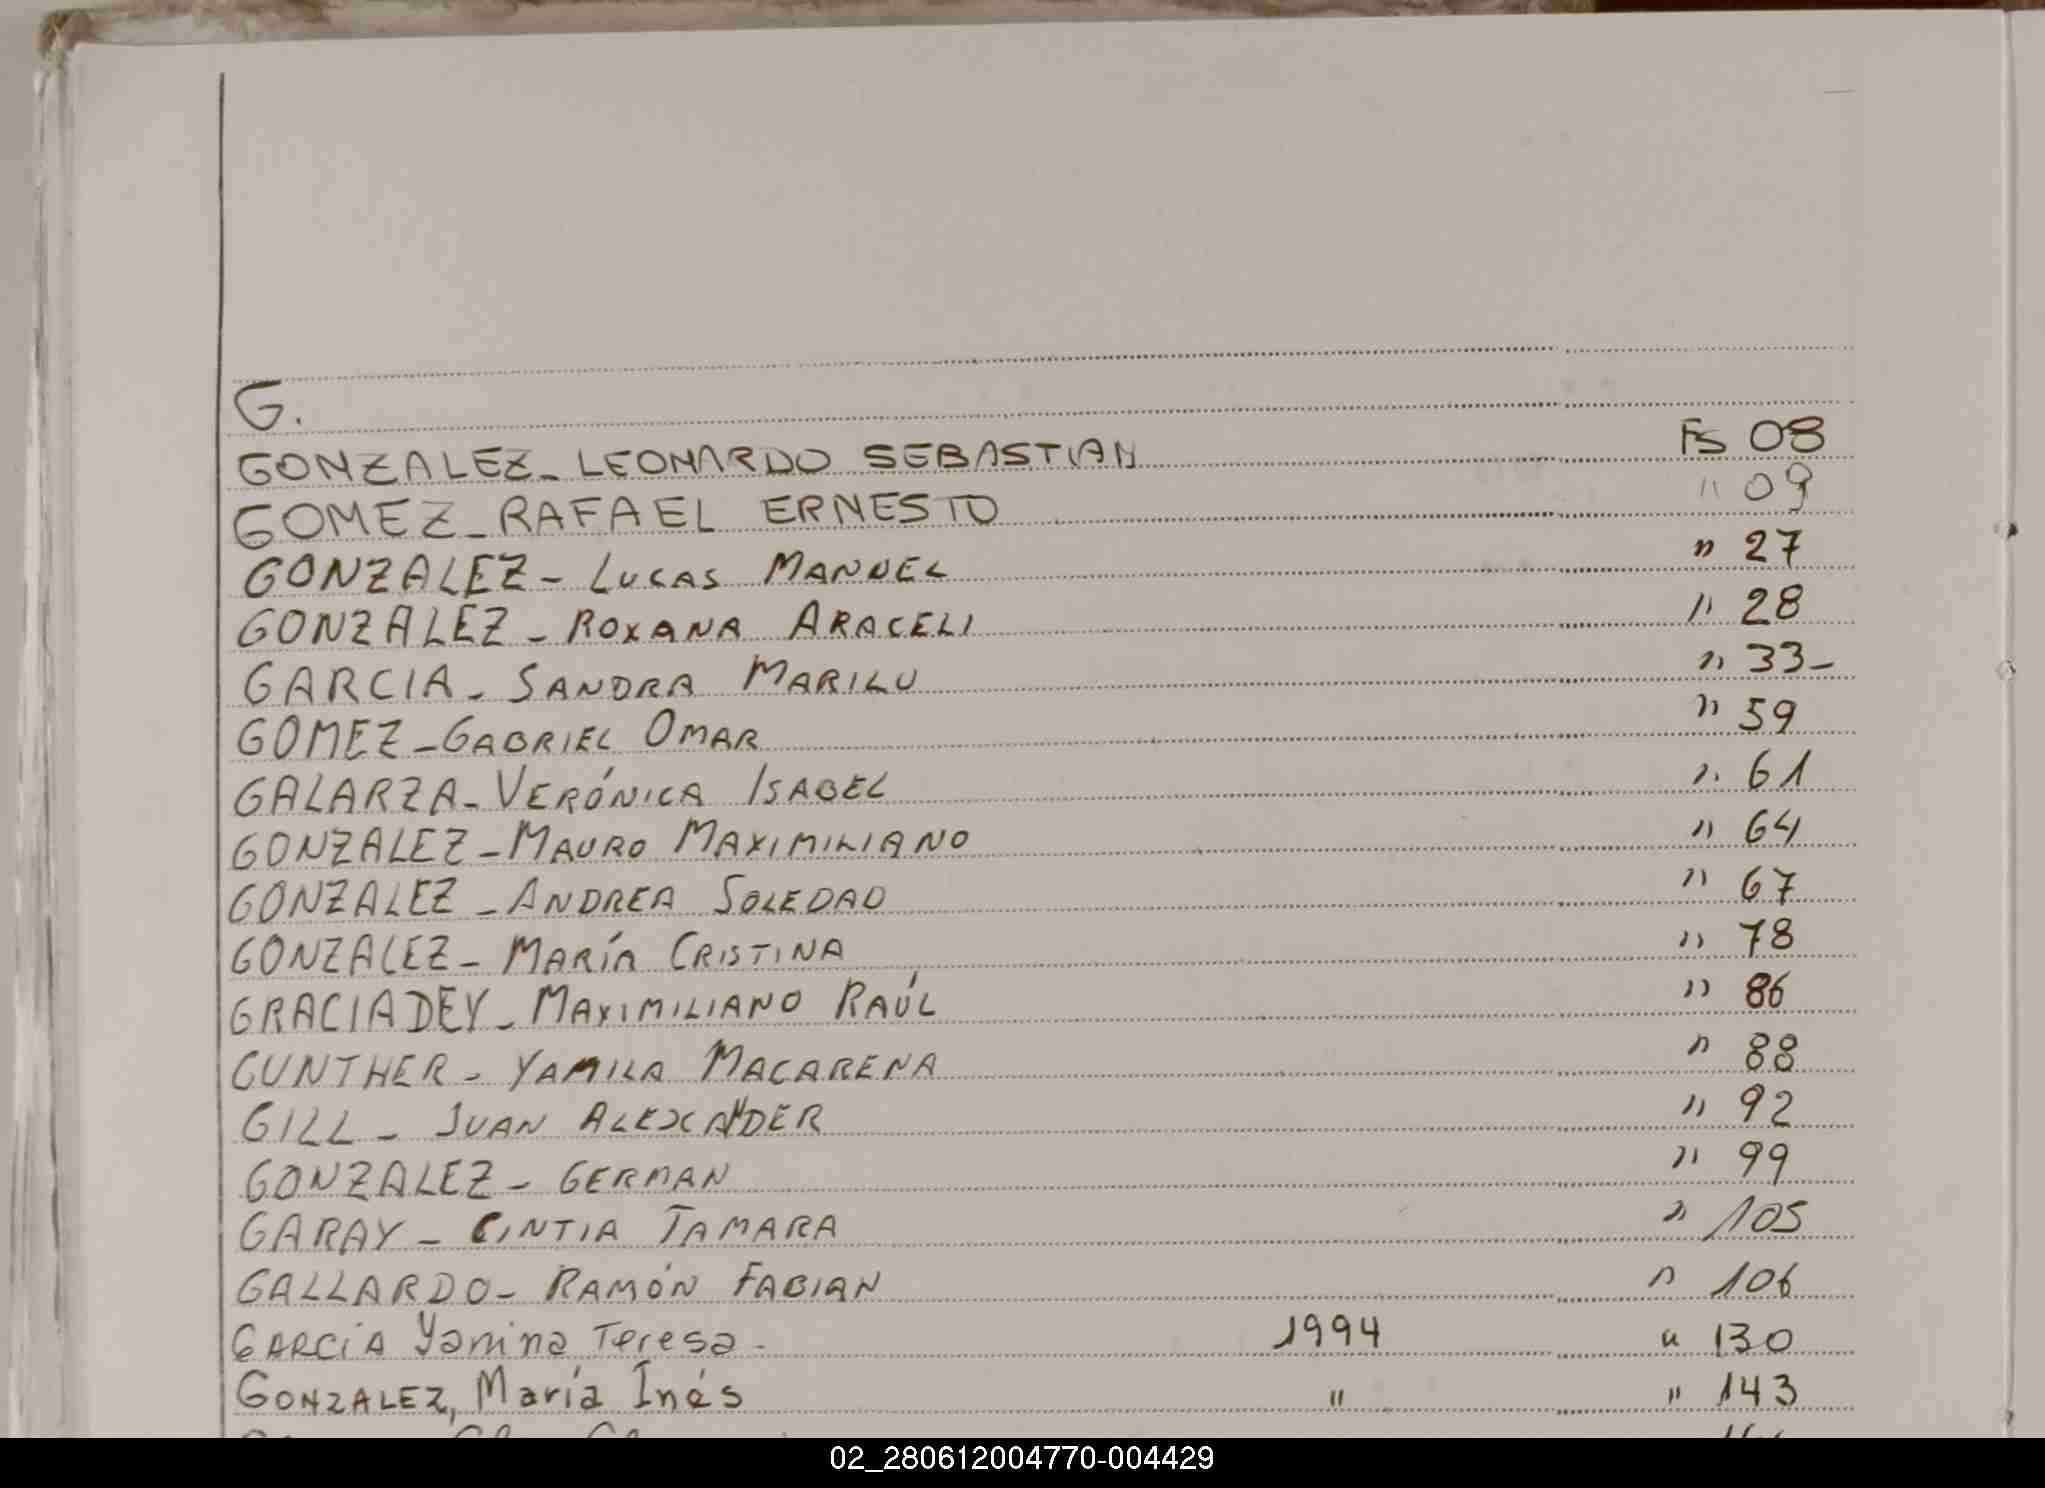 G.
GONZALEZ_LEONARDO SEBASTIAN Fs 08
GOMEZ_RAFAEL ERNESTO " 09
GONZALEZ - LUCAS MANUEL " 27
GONZALEZ - ROXANA ARACELI " 28
GARCIA - SANDRA MARILU " 33-
GOMEZ - GABRIEL OMAR " 59
GALARZA - VERÓNICA ISABEL " 61
GONZALEZ - MAURO MAXIMILIANO " 64
GONZALEZ - ANDREA SOLEDAD " 67
GONZALEZ - MARÍA CRISTINA " 78
GRACIADEY - MAXIMILIANO RAÚL " 86
GUNTHER - YAMILA MACARENA " 88
GILL - JUAN ALEXANDER " 92
GONZALEZ - GERMAN " 99
GARAY - CINTIA TAMARA " 105
GALLARDO - RAMÓN FABIAN " 106
GARCÍA Yanina Teresa - 1994 " 130
GONZALEZ, María Inés " " 143
02_280612004770-004429